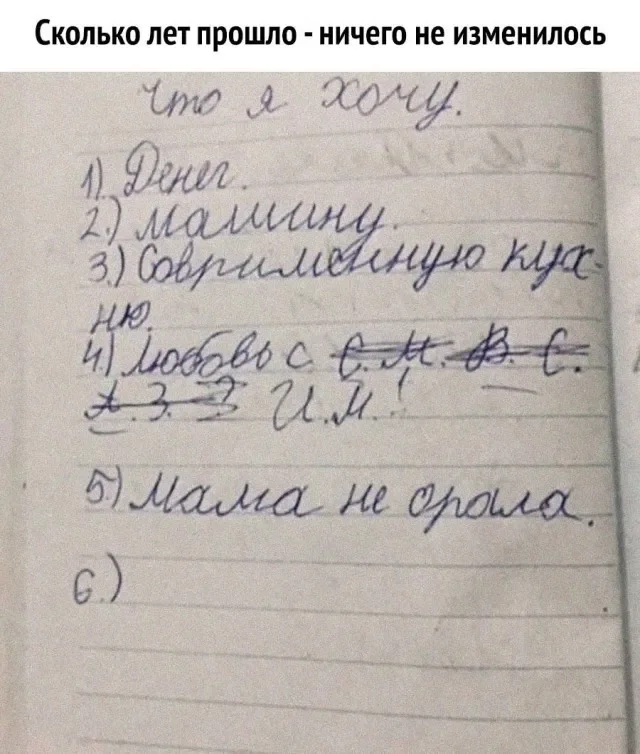 Сколько лет прошло - ничего не изменилось
Что я хочу.
1) Денег.
2.) Машину.
3.) Совримённую кух-
ню.
4) Любовь с С. М. В. С.
А. З. И.М.!
5.) Мама не орала.
6.)